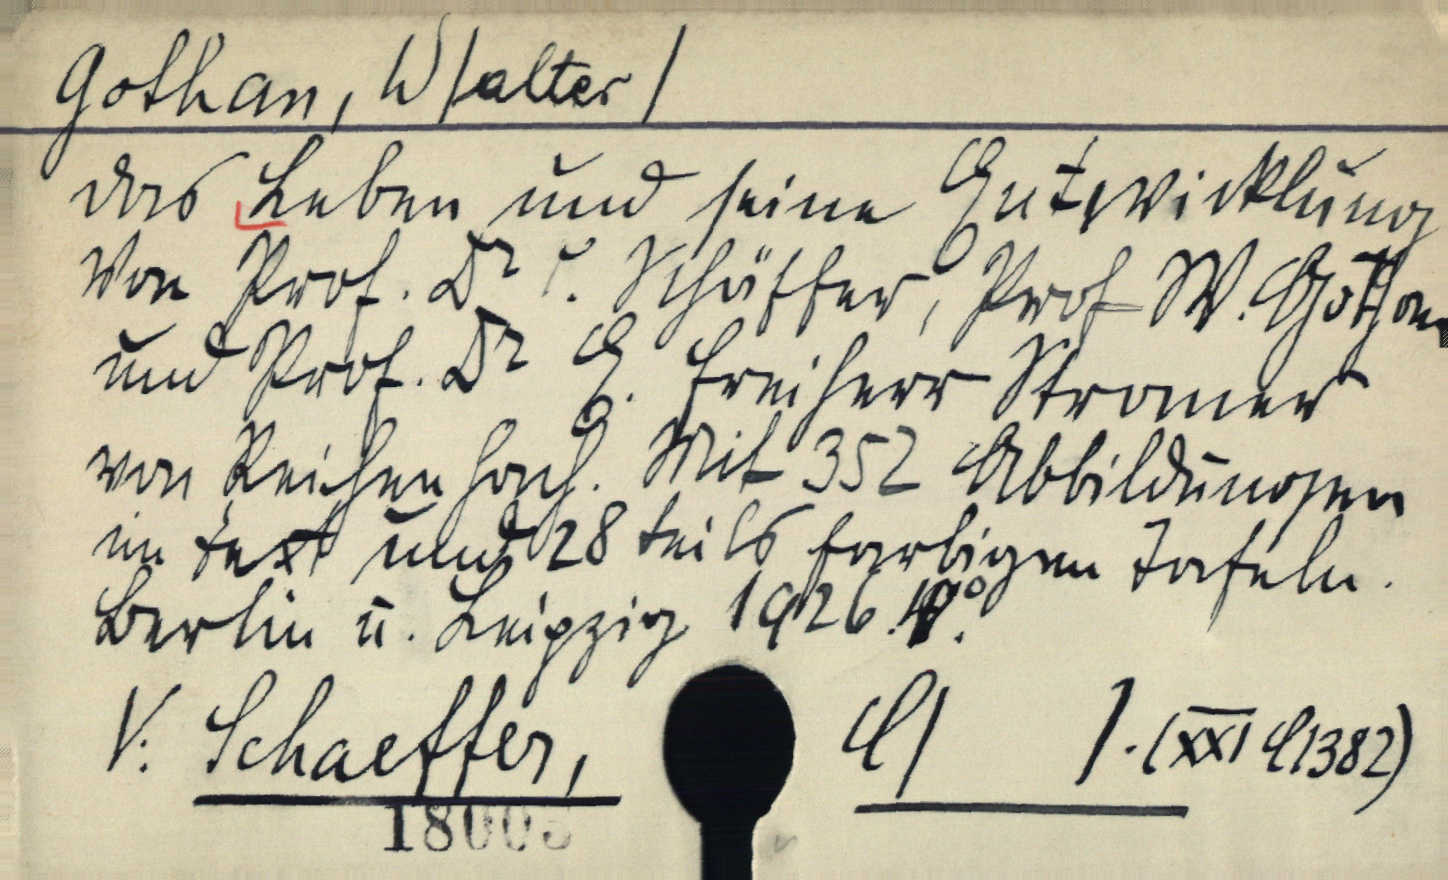 Gothan, W/alter/
Das Leben und seine Entwicklung
Von Prof. Dr C. Schäffer, Prof W. Gothan
und Prof. Dr E. Freiherr Stromer
von Reichenbach. Mit 352 Abbildungen
im Text und 28 teils farbigen Tafeln.
Berlin u. Leipzig 1926. 4°.
V. Schaeffer, C/ /. (XXI C 1382)
18005